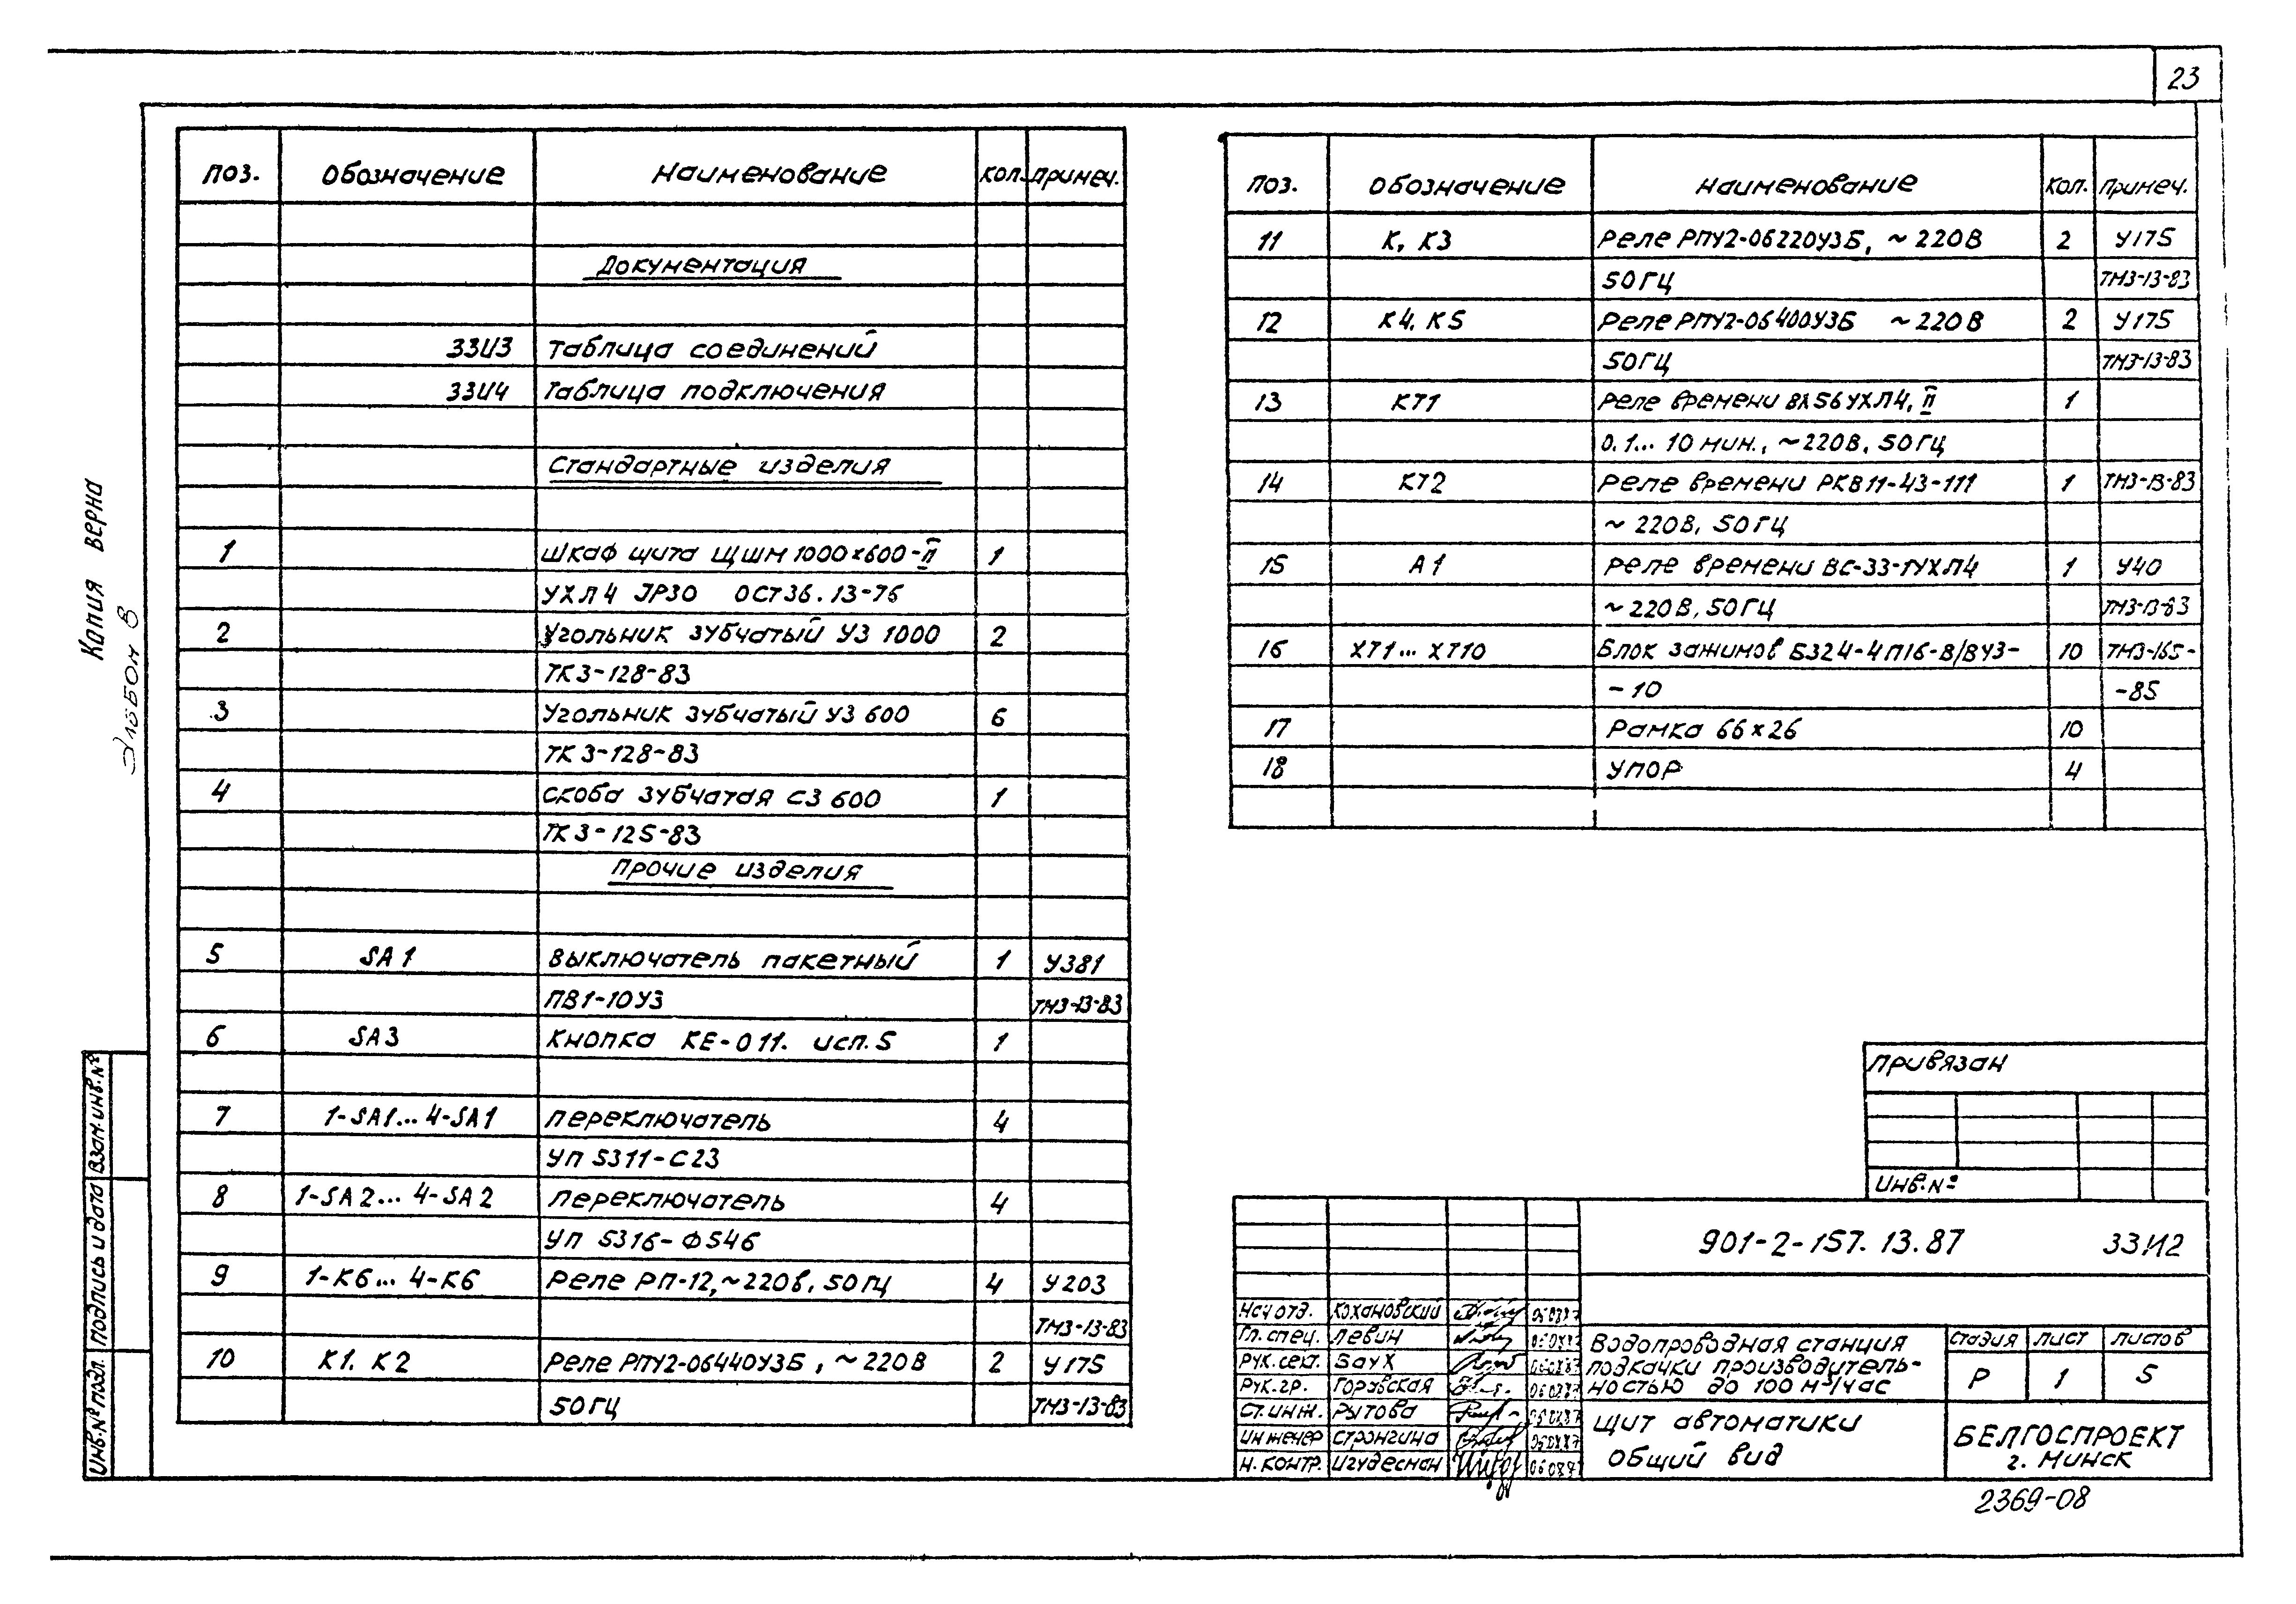 23
поз. обозначение наименование кол. примеч.
Документация
ЭЗИ3 Таблица соединений
ЭЗИ4 Таблица подключения
Стандартные изделия
1 Шкаф щита ЩШМ 1000х600-II 1
УХЛ4 JP30 ОСТ36.13-76
2 Угольник зубчатый УЗ 1000 2
ТК3-128-83
3 Угольник зубчатый УЗ 600 6
ТК3-128-83
4 скоба зубчатая СЗ 600 1
ТК3-125-83
Прочие изделия
5 SA1 Выключатель пакетный 1 У381
ПВ1-10У3 ТМ3-13-83
6 SA3 Кнопка КЕ-011. исп.5 1
7 1-SA1... 4-SA1 переключатель 4
УП 5311-С23
8 1-SA2... 4-SA2 переключатель 4
УП 5316-Ф546
9 1-К6... 4-К6 Реле РП-12,~220в, 50гц 4 У203
ТМ3-13-83
10 К1. К2 Реле РПУ2-06440У3Б, ~220В 2 У175
50ГЦ ТМ3-13-83
поз. обозначение наименование кол. примеч.
11 К, К3 Реле РПУ2-06220У3Б, ~220В 2 У175
50ГЦ ТМ3-13-83
12 К4, К5 Реле РПУ2-06400У3Б ~220В 2 У175
50ГЦ ТМ3-13-83
13 КТ1 реле времени ВЛ56УХЛ4, II 1
0.1... 10 мин., ~220В, 50ГЦ
14 КТ2 Реле времени РКВ11-43-111 1 ТМ3-13-83
~ 220В, 50ГЦ
15 А1 реле времени ВС-33-1УХЛ4 1 У40
~220В, 50ГЦ ТМ3-13-83
16 ХТ1... ХТ10 Блок зажимов БЗ24-4П16-В/ВУ3- 10 ТМ3-165-
-10 -85
17 Рамка 66х26 10
18 УПОР 4
Капия верна
Альбом 8
Взам.инв.№
Подпись и дата
Инв.№ подл.
Привязан
Инв.№
901-2-157.13.87 ЭЗ.И2
Нач отд. Кохановский
Гл. спец. Левин
Рук. сект. Баух
Рук. гр. Горовская
Ст. инж. Рытова
инженер Стронгина
Н. контр. Игудесман
Водопроводная станция
подкачки производитель-
ностью до 100 м³/час
стадия лист листов
Р 1 5
Щит автоматики
Общий вид
БЕЛГОСПРОЕКТ
г. Минск
2369-08